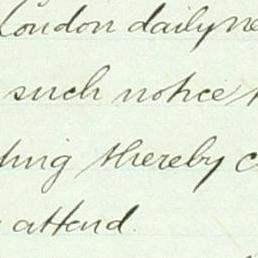 London daily ne
such notice
ding thereby c
attend.